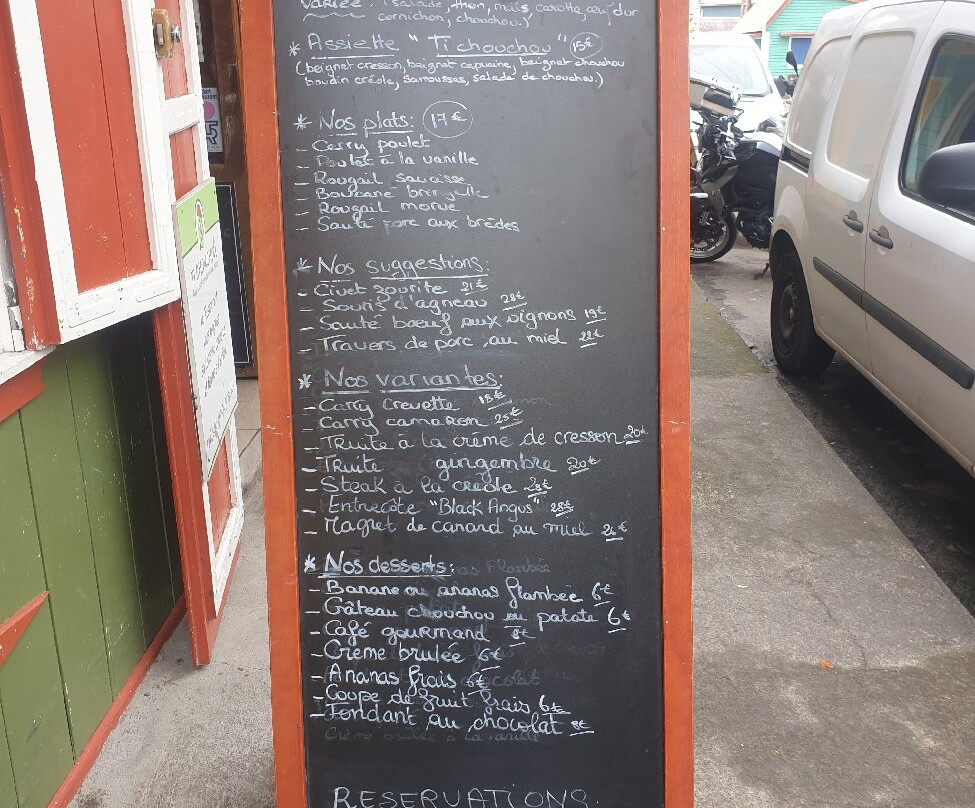 variée : (salade, thon, maïs, carotte, œuf dur
cornichon, chouchou.)
* Assiette "Ti chouchou" 15€
(beignet cresson, beignet capucine, beignet chouchou
boudin créole, samoussas, salade de chouchou.)
* Nos plats: 17€
- Carry poulet
- Poulet à la vanille
- Rougail saucisse
- Boucané bringelle
- Rougail morue
- Sauté porc aux brèdes
* Nos suggestions:
- Civet zourite 21€
- Souris d'agneau 28€
- Sauté bœuf aux oignons 19€
- Travers de porc au miel 22€
* Nos variantes:
- Carry crevette 18€
- Carry camaron 25€
- Truite à la crème de cresson 20€
- Truite gingembre 20€
- Steak à la créole
- Entrecôte "Black Angus" 28€
- Magret de canard au miel 26€
* Nos desserts:
- Banane ou ananas flambée 6€
- Gâteau chouchou ou patate 6€
- Café gourmand 8€
- Crème brulée 6€
- Ananas frais 6€
- Coupe de fruit frais 6€
- Fondant au chocolat 8€
RESERVATIONS.